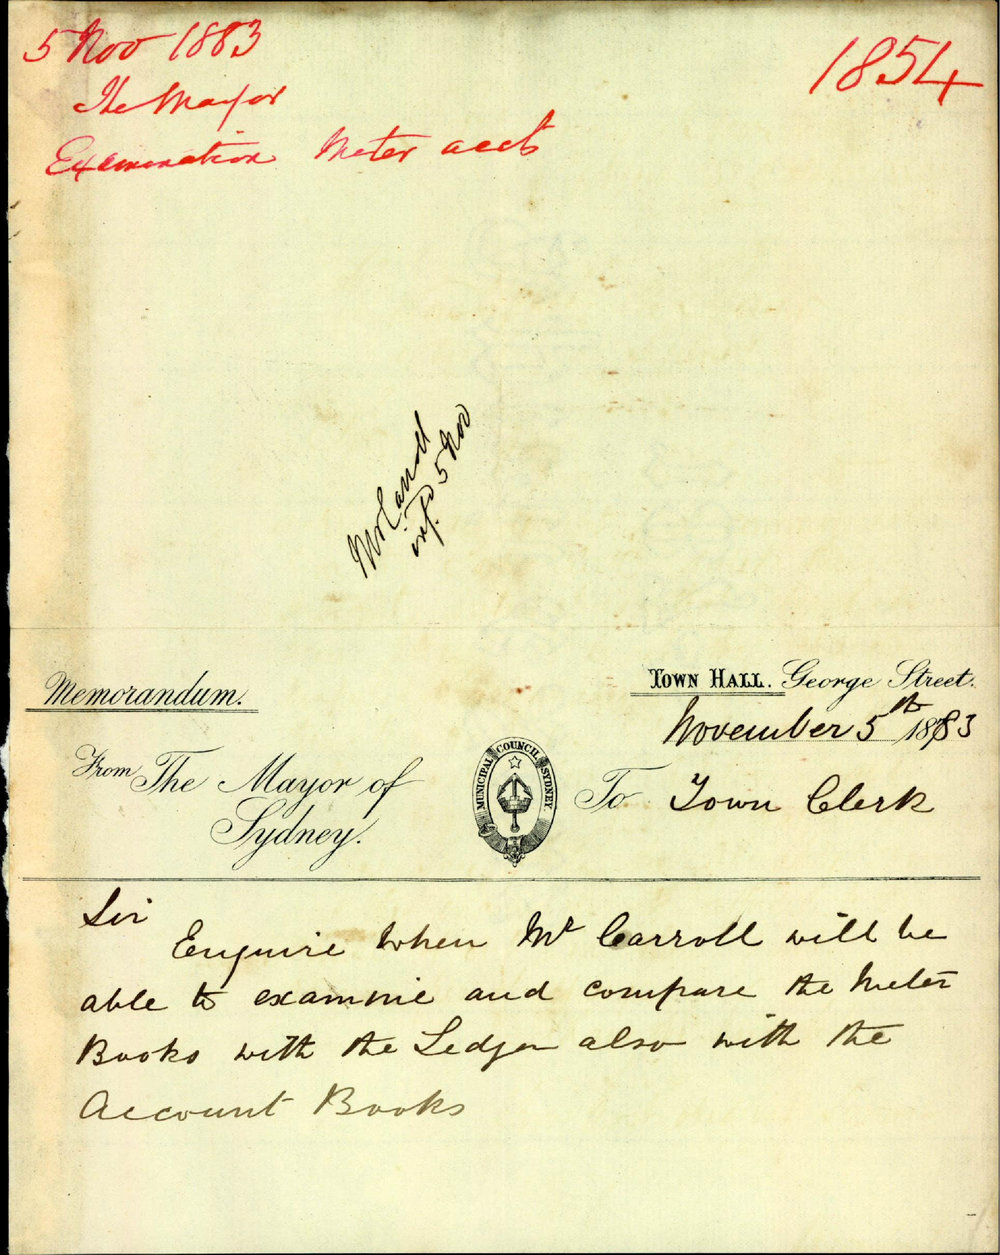 5 Nov 1883
The Mayor
Examination Meter accts
1854
Mr Carroll
infd. 5 Nov
Memorandum.
Town Hall. George Street.
November 5th 1883
From The Mayor of
Sydney.
MUNICIPAL COUNCIL SYDNEY
To Town Clerk
Sir
Enquire when Mr Carroll will be
able to examine and compare the Meter
Books with the Ledger also with the
Account Books